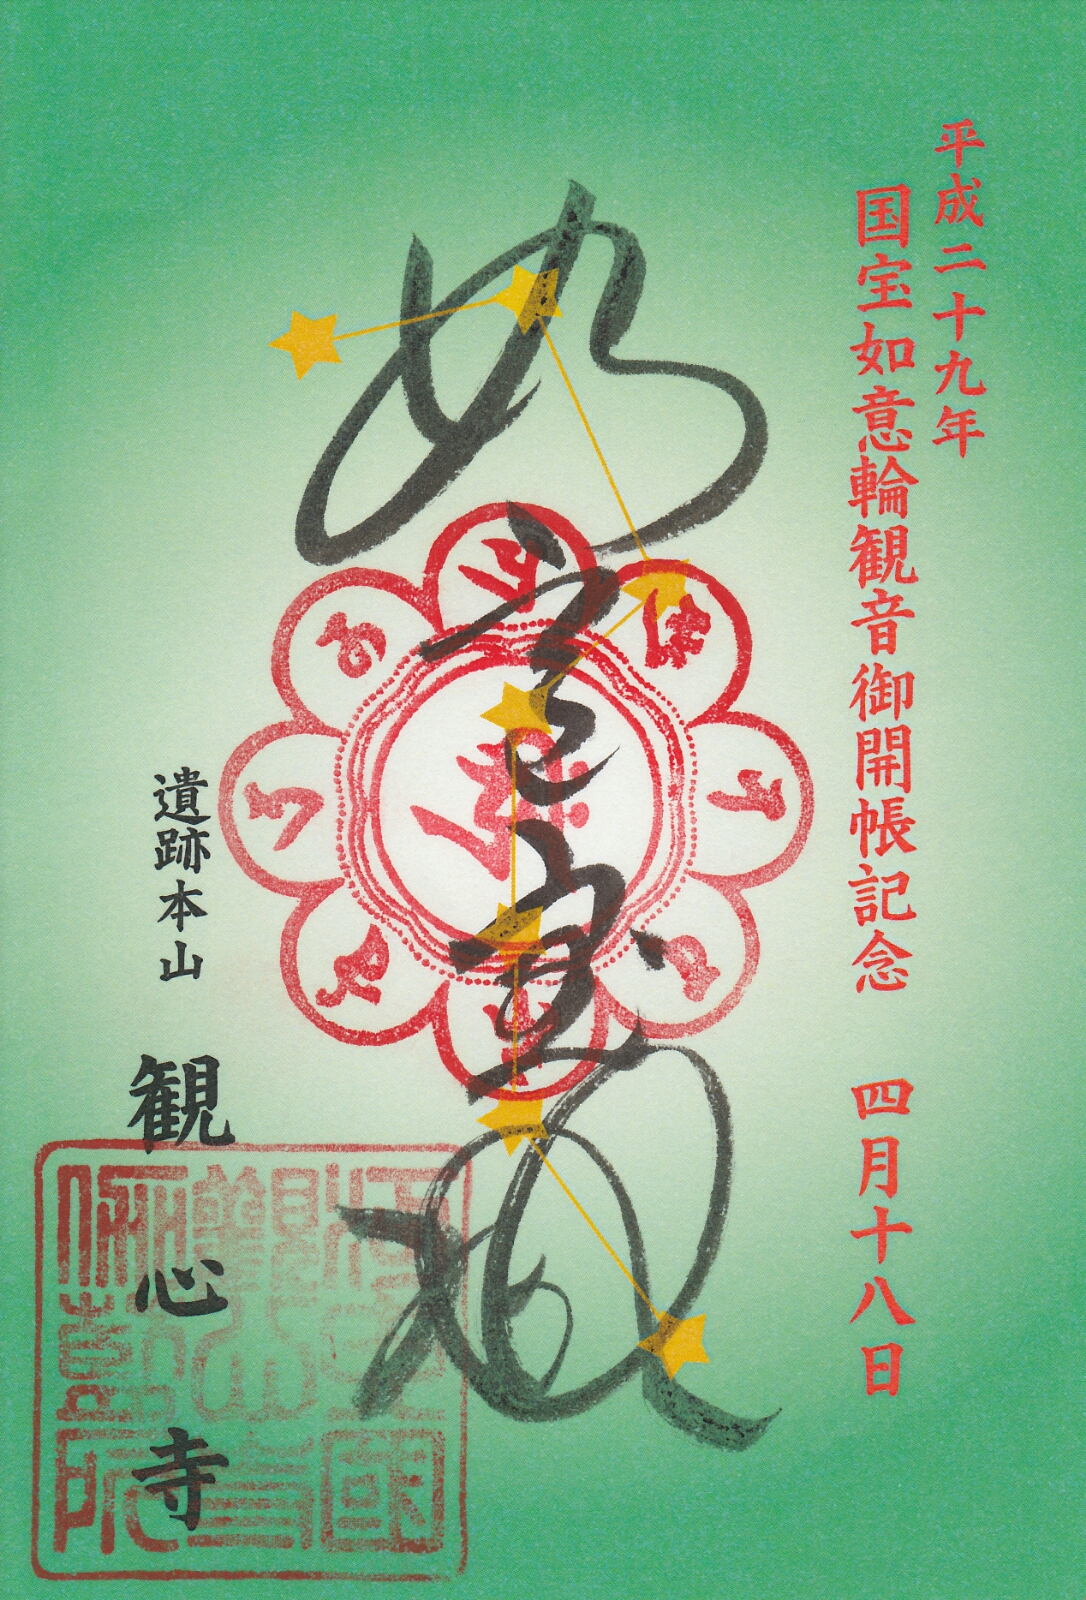 平成二十九年
国宝如意輪観音御開帳記念 四月十八日
如意宝珠
遺跡本山
観心寺